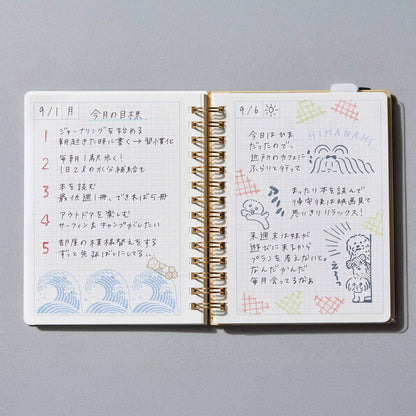 9/1 月
今月の目標
1
ジャーナリングを始める
朝起きた時に書く→習慣化
2
毎朝1駅歩く!
1日2Lの水分補給も
3
本を読む
最低週1冊、できれば5冊
4
アウトドアを楽しむ
サーフィン&キャンプがしたい
5
部屋の模様替えをする
ずっと先延ばしにしてる..
9/6
今日はひま
だったので、
近所のカフェに
ふらりと行って
HIMANAMI
まったり本を読んで
帰宅後は映画見て
思いきりリラックス!
来週末は妹が
遊びに来るから
プランを考えないと。
なんだかんだ
毎月会ってるなぁ